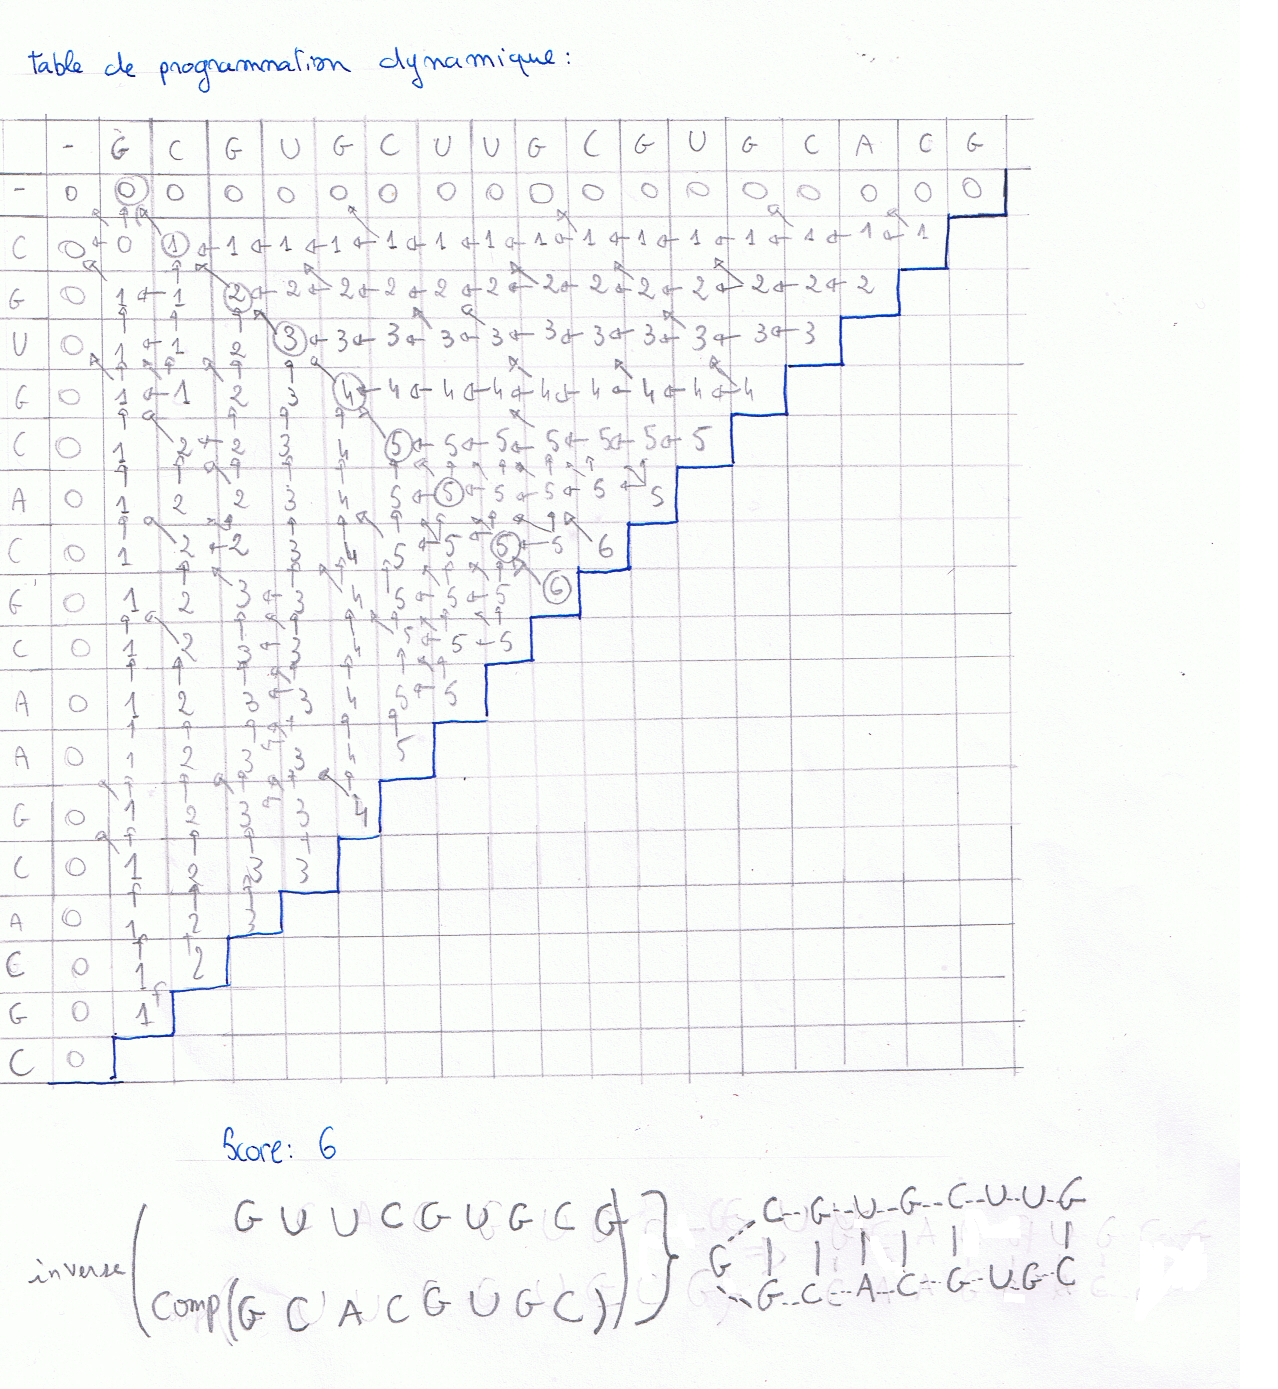 table de programmation dynamique:
- G C G U G C U U G C G U G C A C G
- 0 0 0 0 0 0 0 0 0 0 0 0 0 0 0 0 0 0
C 0 0 1 1 1 1 1 1 1 1 1 1 1 1 1 1 1
G 0 1 1 2 2 2 2 2 2 2 2 2 2 2 2 2
U 0 1 1 2 3 3 3 3 3 3 3 3 3 3 3
G 0 1 1 2 3 4 4 4 4 4 4 4 4 4
C 0 1 2 2 3 4 5 5 5 5 5 5 5
A 0 1 2 2 3 4 5 5 5 5 5 5
C 0 1 2 2 3 4 5 5 5 5 6
G 0 1 2 3 3 4 5 5 5 6
C 0 1 2 3 3 4 5 5 5
A 0 1 2 3 3 4 5 5
A 0 1 2 3 3 4 5
G 0 1 2 3 3 4
C 0 1 2 3 3
A 0 1 2 3
C 0 1 2
G 0 1
C 0
Score: 6
G U U C G U G C G
inverse
Comp(G C A C G U G C)
C G U G C U U G
G
G C A C G U G C